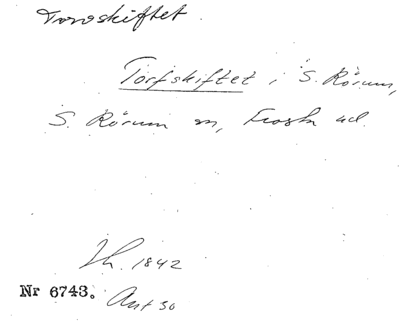 Torvskiftet.
Torfskiftet i S. Rörum,
S. Rörum sn, Frosta hd.
Lh. 1842
Nr 6743. Ant 30